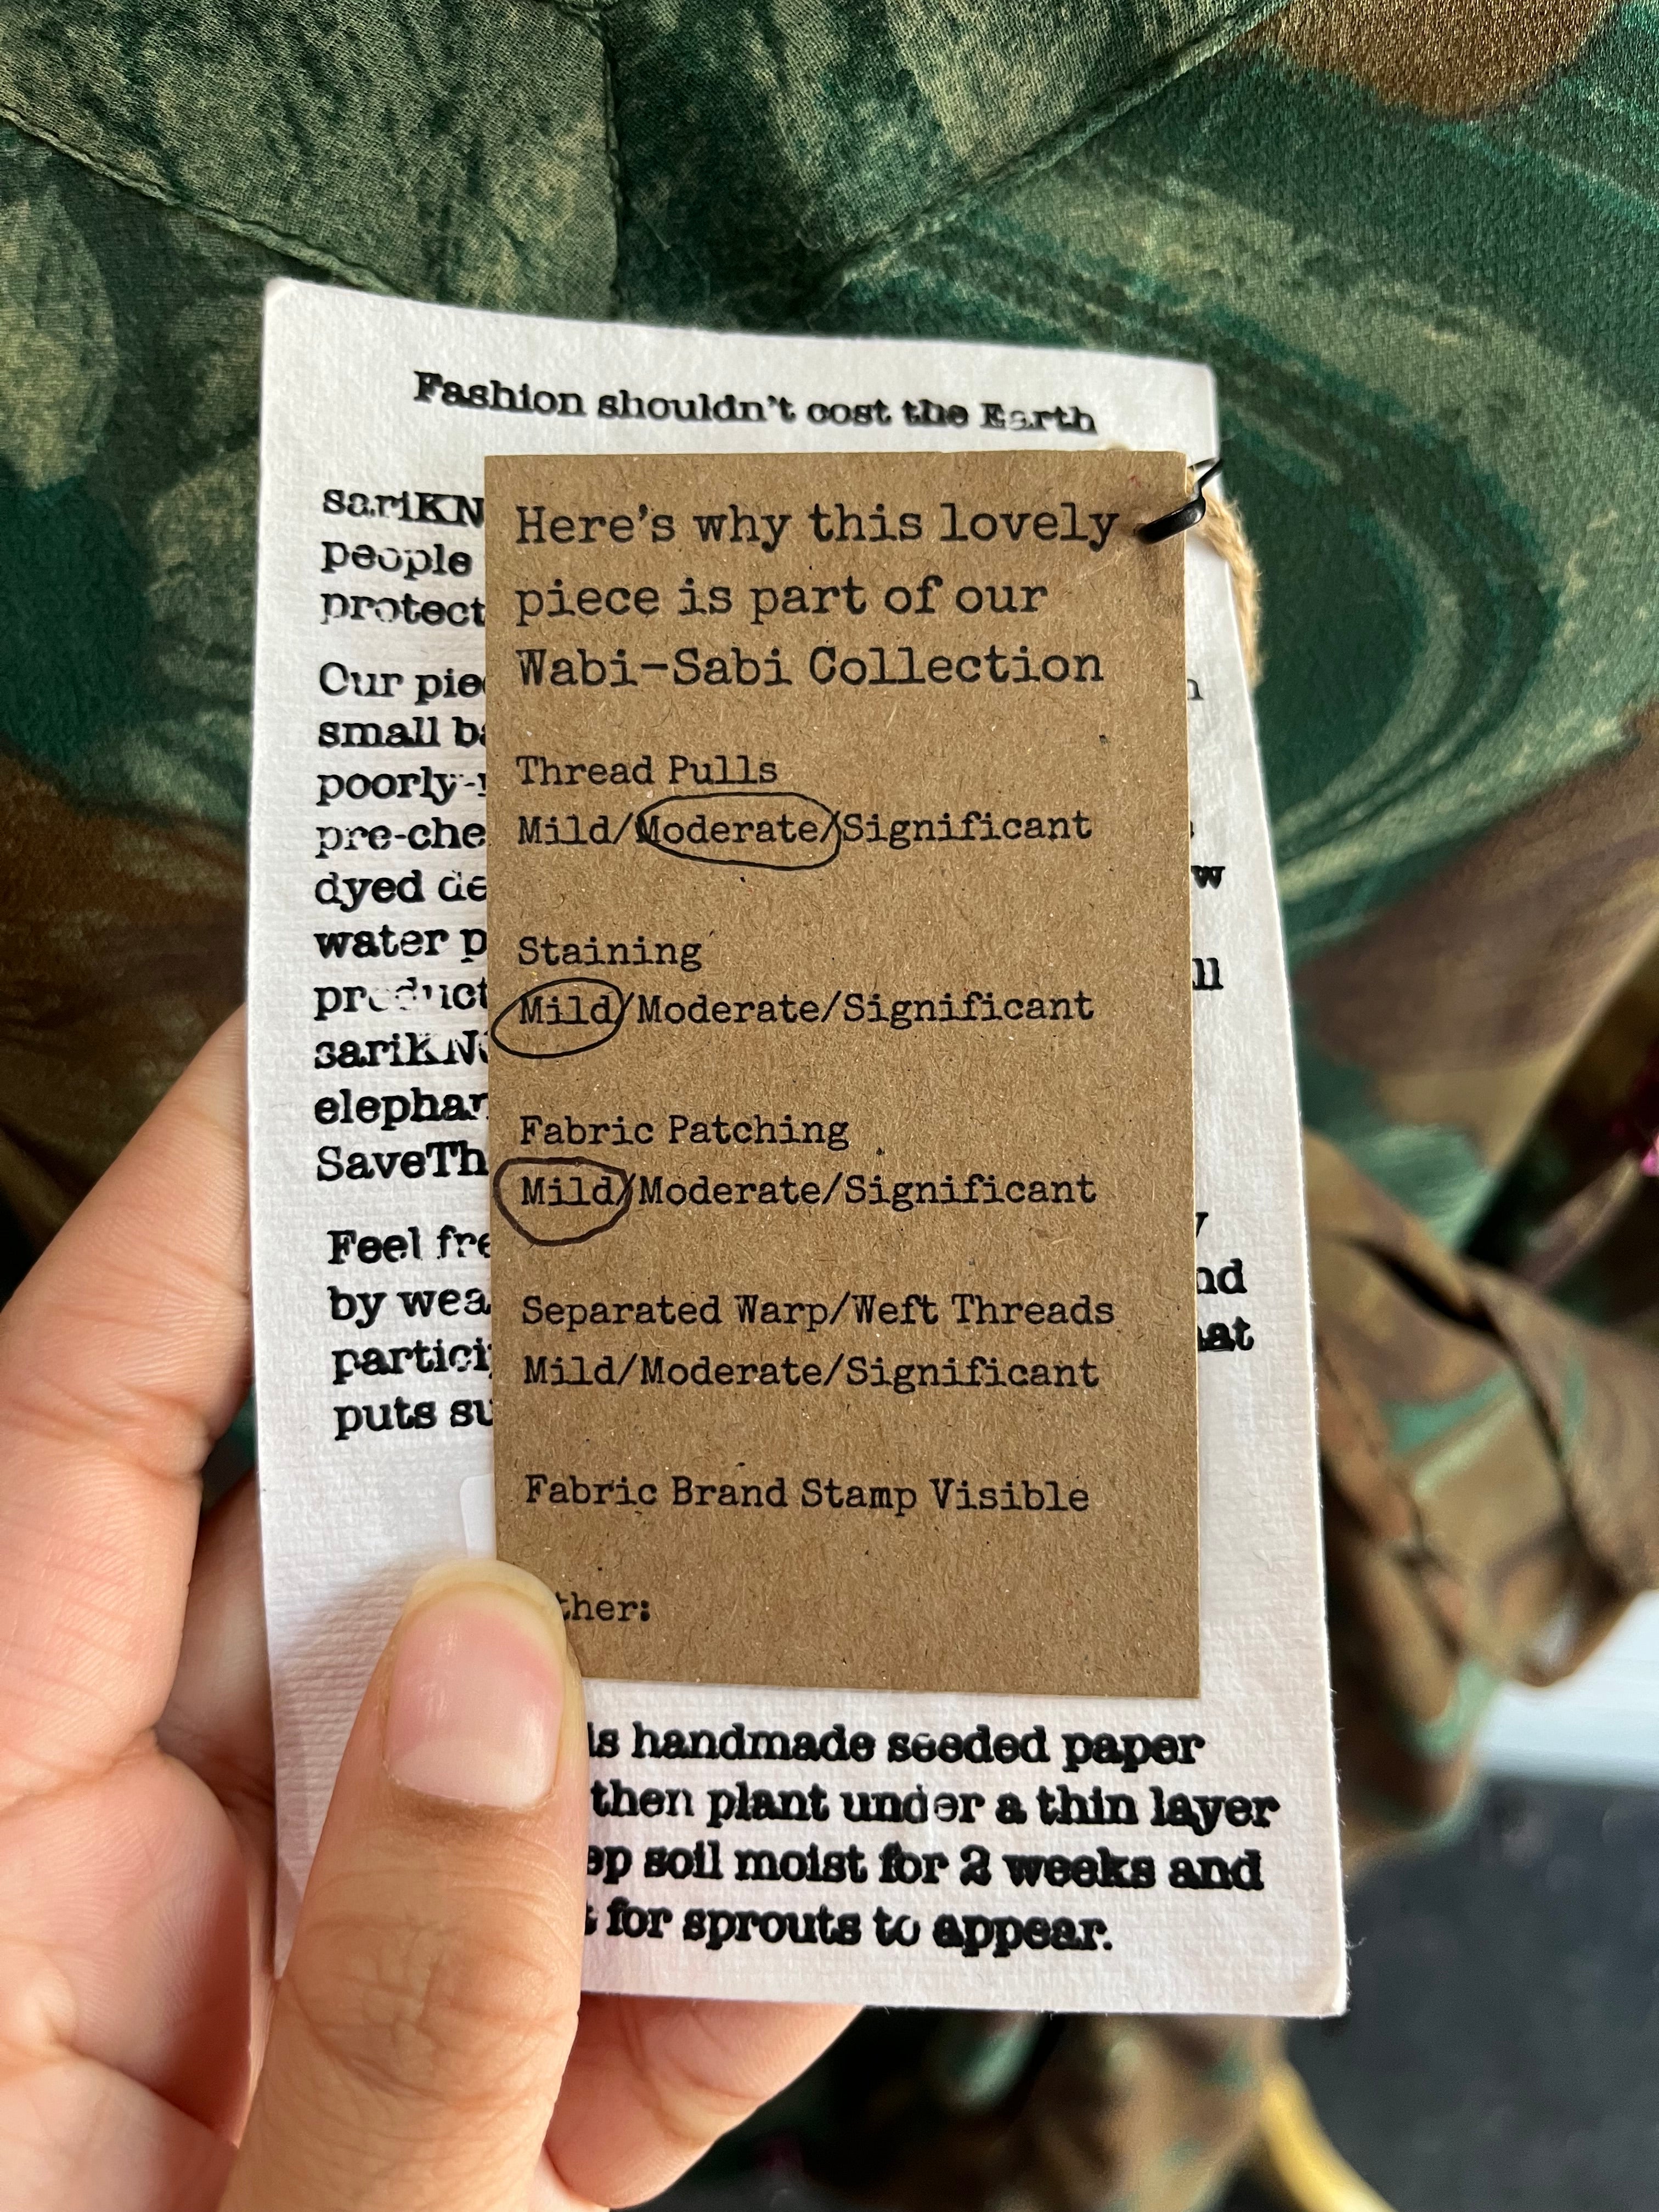 Fashion shouldn't cost the Earth
people
protect
Our
small
poorly-
pre-che
dyed
water
product
SaveTh
Feel
by
puts
Here's why this lovely
piece is part of our
Wabi-Sabi Collection
Thread Pulls
Mild/Moderate/Significant
Staining
Mild/Moderate/Significant
Fabric Patching
Mild/Moderate/Significant
Separated Warp/Weft Threads
Mild/Moderate/Significant
Fabric Brand Stamp Visible
ther:
handmade seeded paper
then plant under a thin layer
soil moist for 2 weeks and
for sprouts to appear.